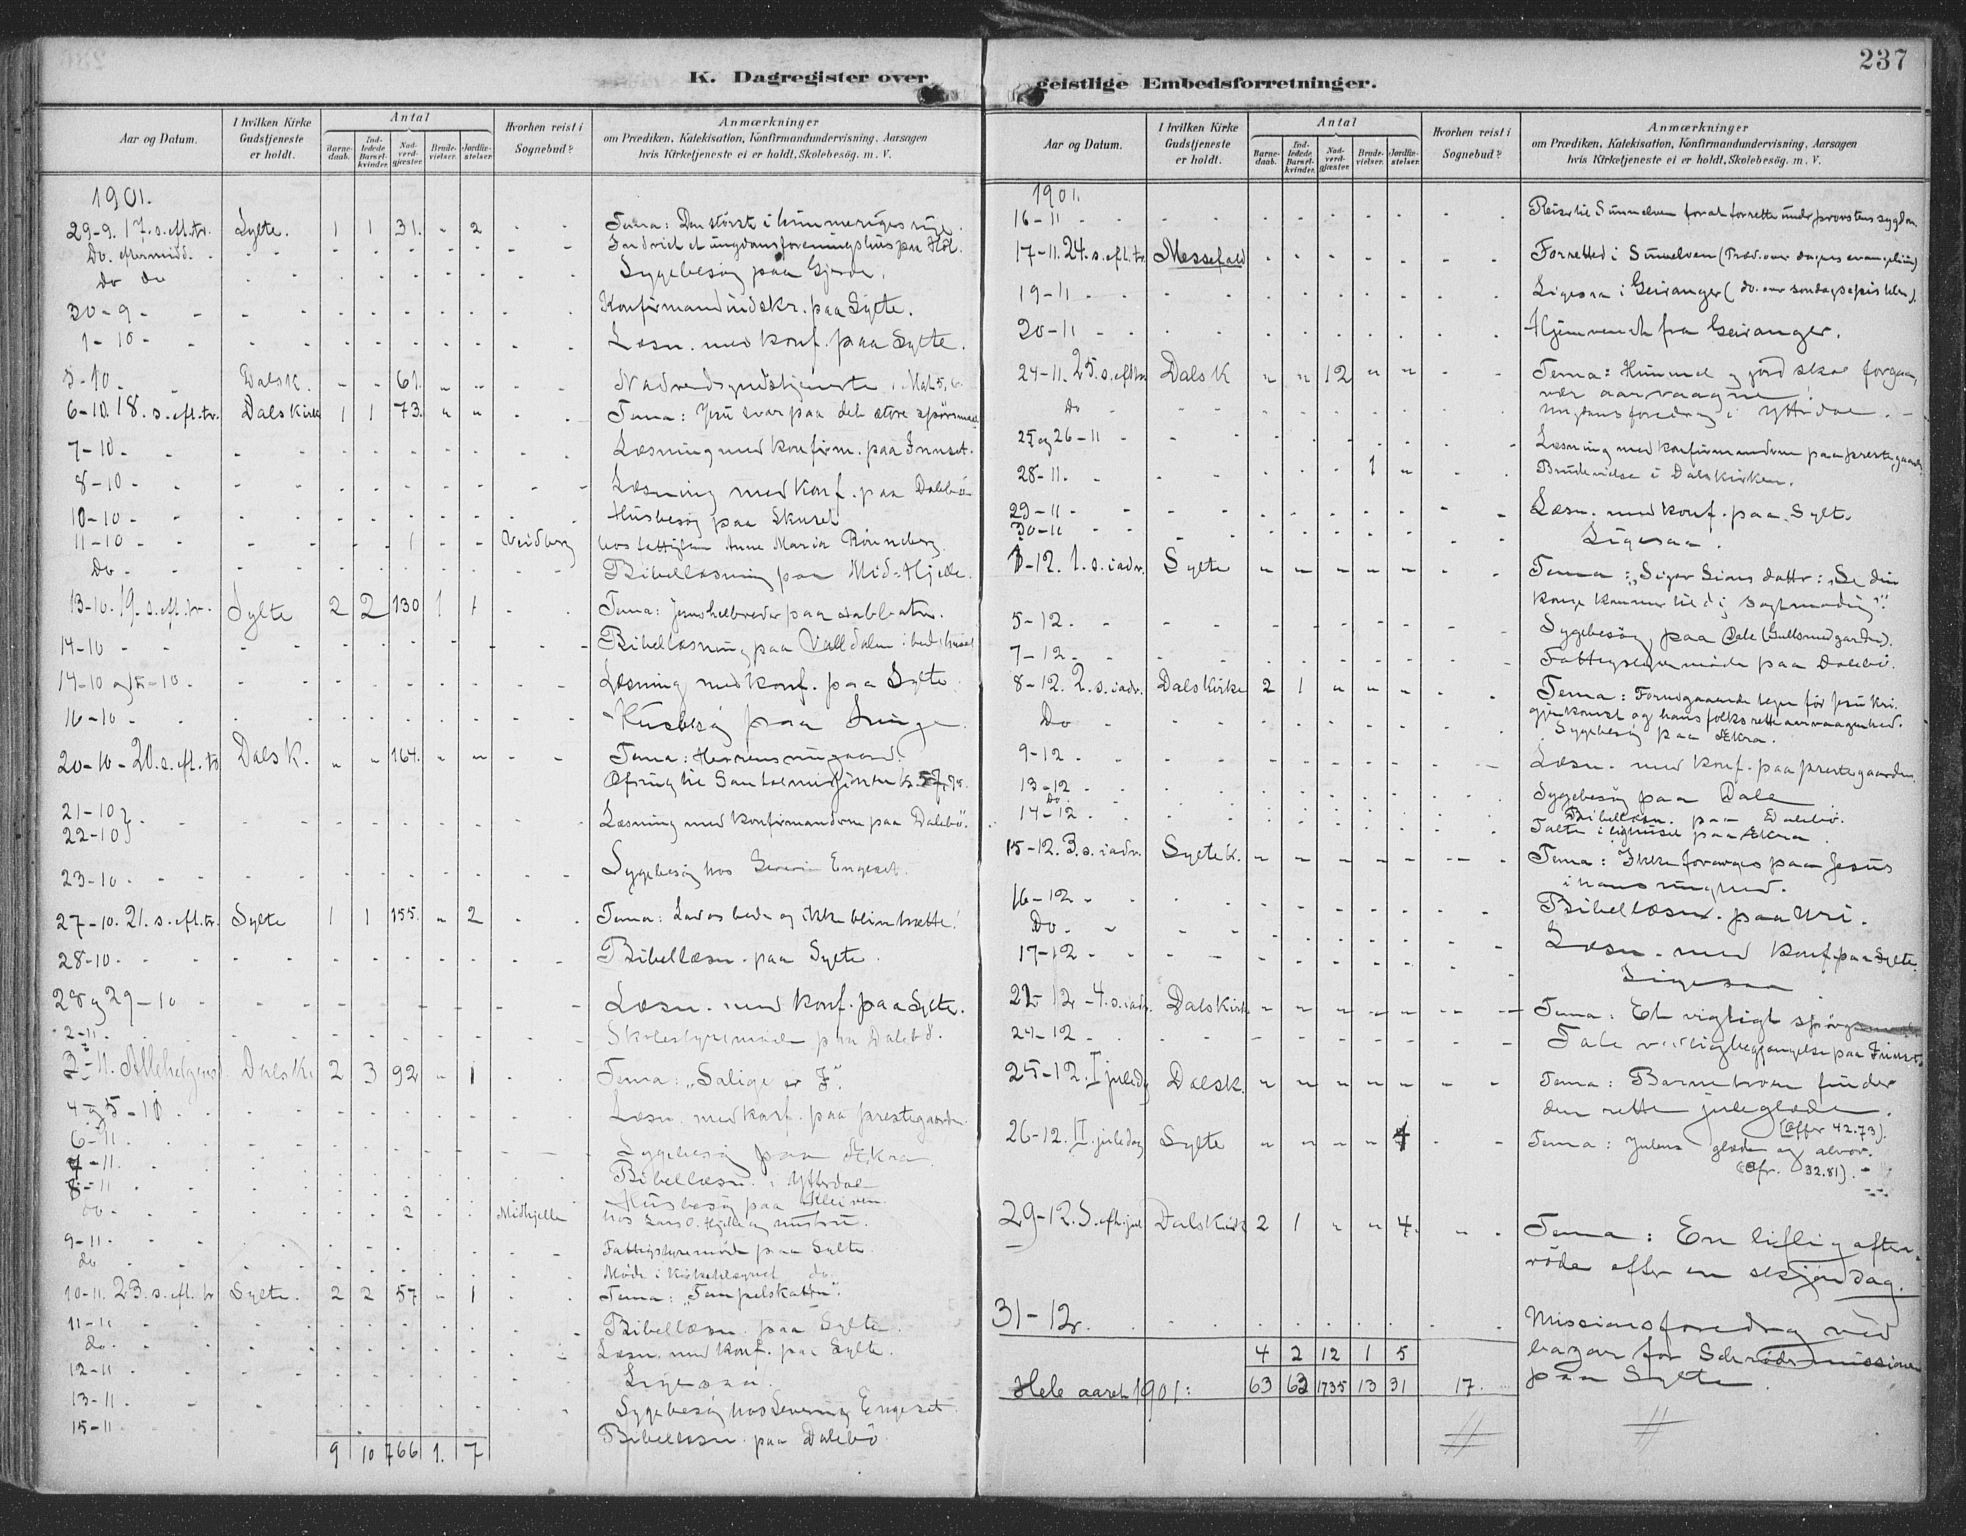 237
K. Dagregister over
geistlige Embedsforretninger.
Aar og Datum.
I hvilken Kirke Gudstjeneste er holdt.
Antal
Barnedaab.
Indledede Barselkvinder.
Nadverdgjester.
Brudevielser.
Jordfæstelser.
Hvorhen reist i Sognebud?
Anmærkninger
om Prædiken, Katekisation, Konfirmandundervisning, Aarsagen
hvis Kirketjeneste ei er holdt, Skolebesøg. m. V.
1901.
29-9. 17. s. eft. tr. Sylte. 1 1 31. - 2 Tema: Den störste i himmeriges rige.
Do. eftermidd. Indvied et ungdomsforeningshus paa
Do do Sygebesög paa Gjerde.
30-9 Konfirmandindskr. paa Sylte.
1-10 Læsn. med konf. paa Sylte.
5-10 Dalsk. - - 61. - -
6-10. 18. s. eft. tr. Dalskirke 1 1 73. Tema: Jesu svar paa det store spörsmaal
7-10 Læsning med konfirm. paa Innset.
8-10 Læsning med konf. paa Dalebö
10-10 Husbesög paa
11-10 1 Veidberg hos Anne Maria Rønneberg.
Do Bibellæsning paa Mid-Hjelle.
13-10. 19. s. eft. tr. Sylte 2 2 130 1 1 Tema: Jesus helbreder paa sabbaten.
14-10 Bibellæsning paa Valldalen i bedehuset
14-10 og 15-10 Læsning med konf. paa Sylte.
16-10 Husbesög paa Linge.
20-10 - 20. s. eft. tr. Dalsk. 164. Tema: Herrens
21-10
22-10 Læsning med konfirmanderne paa Dalebö.
23-10 Sygebesög hos Severin Engeset.
27-10. 21. s. eft. tr. Sylte 1 1 155. - 2 Tema: Lad os bede og ikke blive trætte!
28-10 Bibellæsn. paa Sylte.
28 og 29-10 Læsn. med konf. paa Sylte.
2-11 Skolestyremöde paa Dalebö.
3-11. Allehelgensd. Dalsk. 2 3 92 - 1 Tema: "Salige er I".
4 og 5-11 Læsn. med konf. paa prestegaarden.
6-11 Sygebesög paa Ækra
7-11 Bibellæsn. i Ytterdal
8-11 Husbesög paa Kleiven.
do 2 Midhjelle hos Lars O. Hjelle og hustru.
9-11 Fattigstyremöde paa Sylte.
do Möde i kirketilsynet do.
10-11. 23. s. eft. tr Sylte. 2 2 57 - 1 Tema: "Tempelskatten".
11-11 Bibellæsn. paa Sylte.
do. Læsn. med konf. paa Sylte.
12-11 Ligesaa.
13-11 Sygebesög hos Severin Engeset.
15-11 Bibellæsn. paa Dalebö
9 10 766 1. 7
Aar og Datum.
I hvilken Kirke Gudstjeneste er holdt.
Antal
Barnedaab.
Indledede Barselkvinder.
Nadverdgjæster.
Brudevielser.
Jordfæstelser.
Hvorhen reist i Sognebud?
Anmærkninger
om Prædiken, Katekisation, Konfirmandundervisning, Aarsagen
hvis Kirketjeneste ei er holdt, Skolebesøg. m. V.
1901.
16-11 Reise til Sunnelven for at forrette under provstens sygdom.
17-11. 24. s. eft. tr. Messefald Forrettet i Sunnelven (Præd. over dagens evangelium)
19-11 Ligesaa i Geiranger (do. over söndagsepistelen).
20-11 Hjemvendt fra Geiranger.
24-11. 25. s. eft. tr. Dalsk 12 Tema: Himmel og jord skal forgaa,
vær aarvaagne!
Do Ungdomsforedrag i Ytterdal.
25 og 26-11 Læsning med konfirmanderne paa prestegaarden
28-11. 1 Brudevielse i Dalskirken.
29-11 Læsn. med konf. paa Sylte.
30-11 Ligesaa.
1-12. 1. s. i adv. Sylte Tema: "Siger Sions datter: "Se din
konge kommer til dig sagtmodig".
5-12. Sygebesög paa Dale (Gullsmedgarden).
7-12 Fattigstyremöde paa Dalebö.
8-12. 2. s. i adv. Dalskirke 2 1 Tema: Forudgaaende tegn for Jesu
gjenkomst og hans folks rette aarvaagenhed.
Do Sygebesög paa Ækra.
9-12 Læsn. med konf. paa prestegaarden.
13-12 Sygebesög paa Dale
Do. Bibellæsn. paa Dalebö.
14-12 Talte i lighuset paa Ækra.
15-12. 3. s. i adv. Sylte k. Tema: Ikke forarges paa Jesus
i hans ringhed.
16-12 Bibellæsn. paa Uri.
Do. Læsn. med konf. paa Sylte.
17-12 Ligesaa
22-12 - 4. s. i adv. Dalskirke Tema: Et vigtigt spörgsmaal
24-12 Tale ved ligbegjængelse paa Innset.
25-12. I juledag Dalsk. Tema: Barnetroen finder
den rette juleglæde.
(Offer 42.73).
26-12. II juledag Sylte 1 Tema: Julens glæde og alvor.
(Ofr. 32.81).
29-12. S. eft. jul Dalskirke 2 1 4. Tema: En liflig aften-
röde efter en skjön dag.
31-12. Missionsforedrag ved
bazar for Schröders mission
paa Sylte.
4 2 12 1 5
Hele aaret 1901: 63 62 1735 13 31 17.